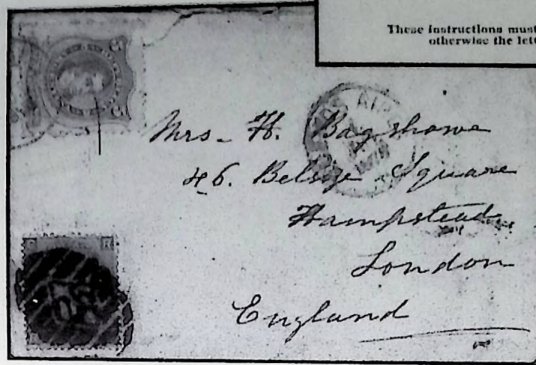 These instructions must
otherwise the lett
Mrs. H. Bagshawe
46. Belsize Square
Hampstead
London
England